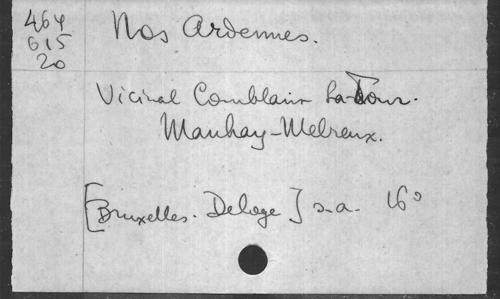 464
615
20
Nos Ardennes.
Vicinal Comblain La-Tour.
Manhay-Melreux.
[Bruxelles. Deloge] s.a. 16°